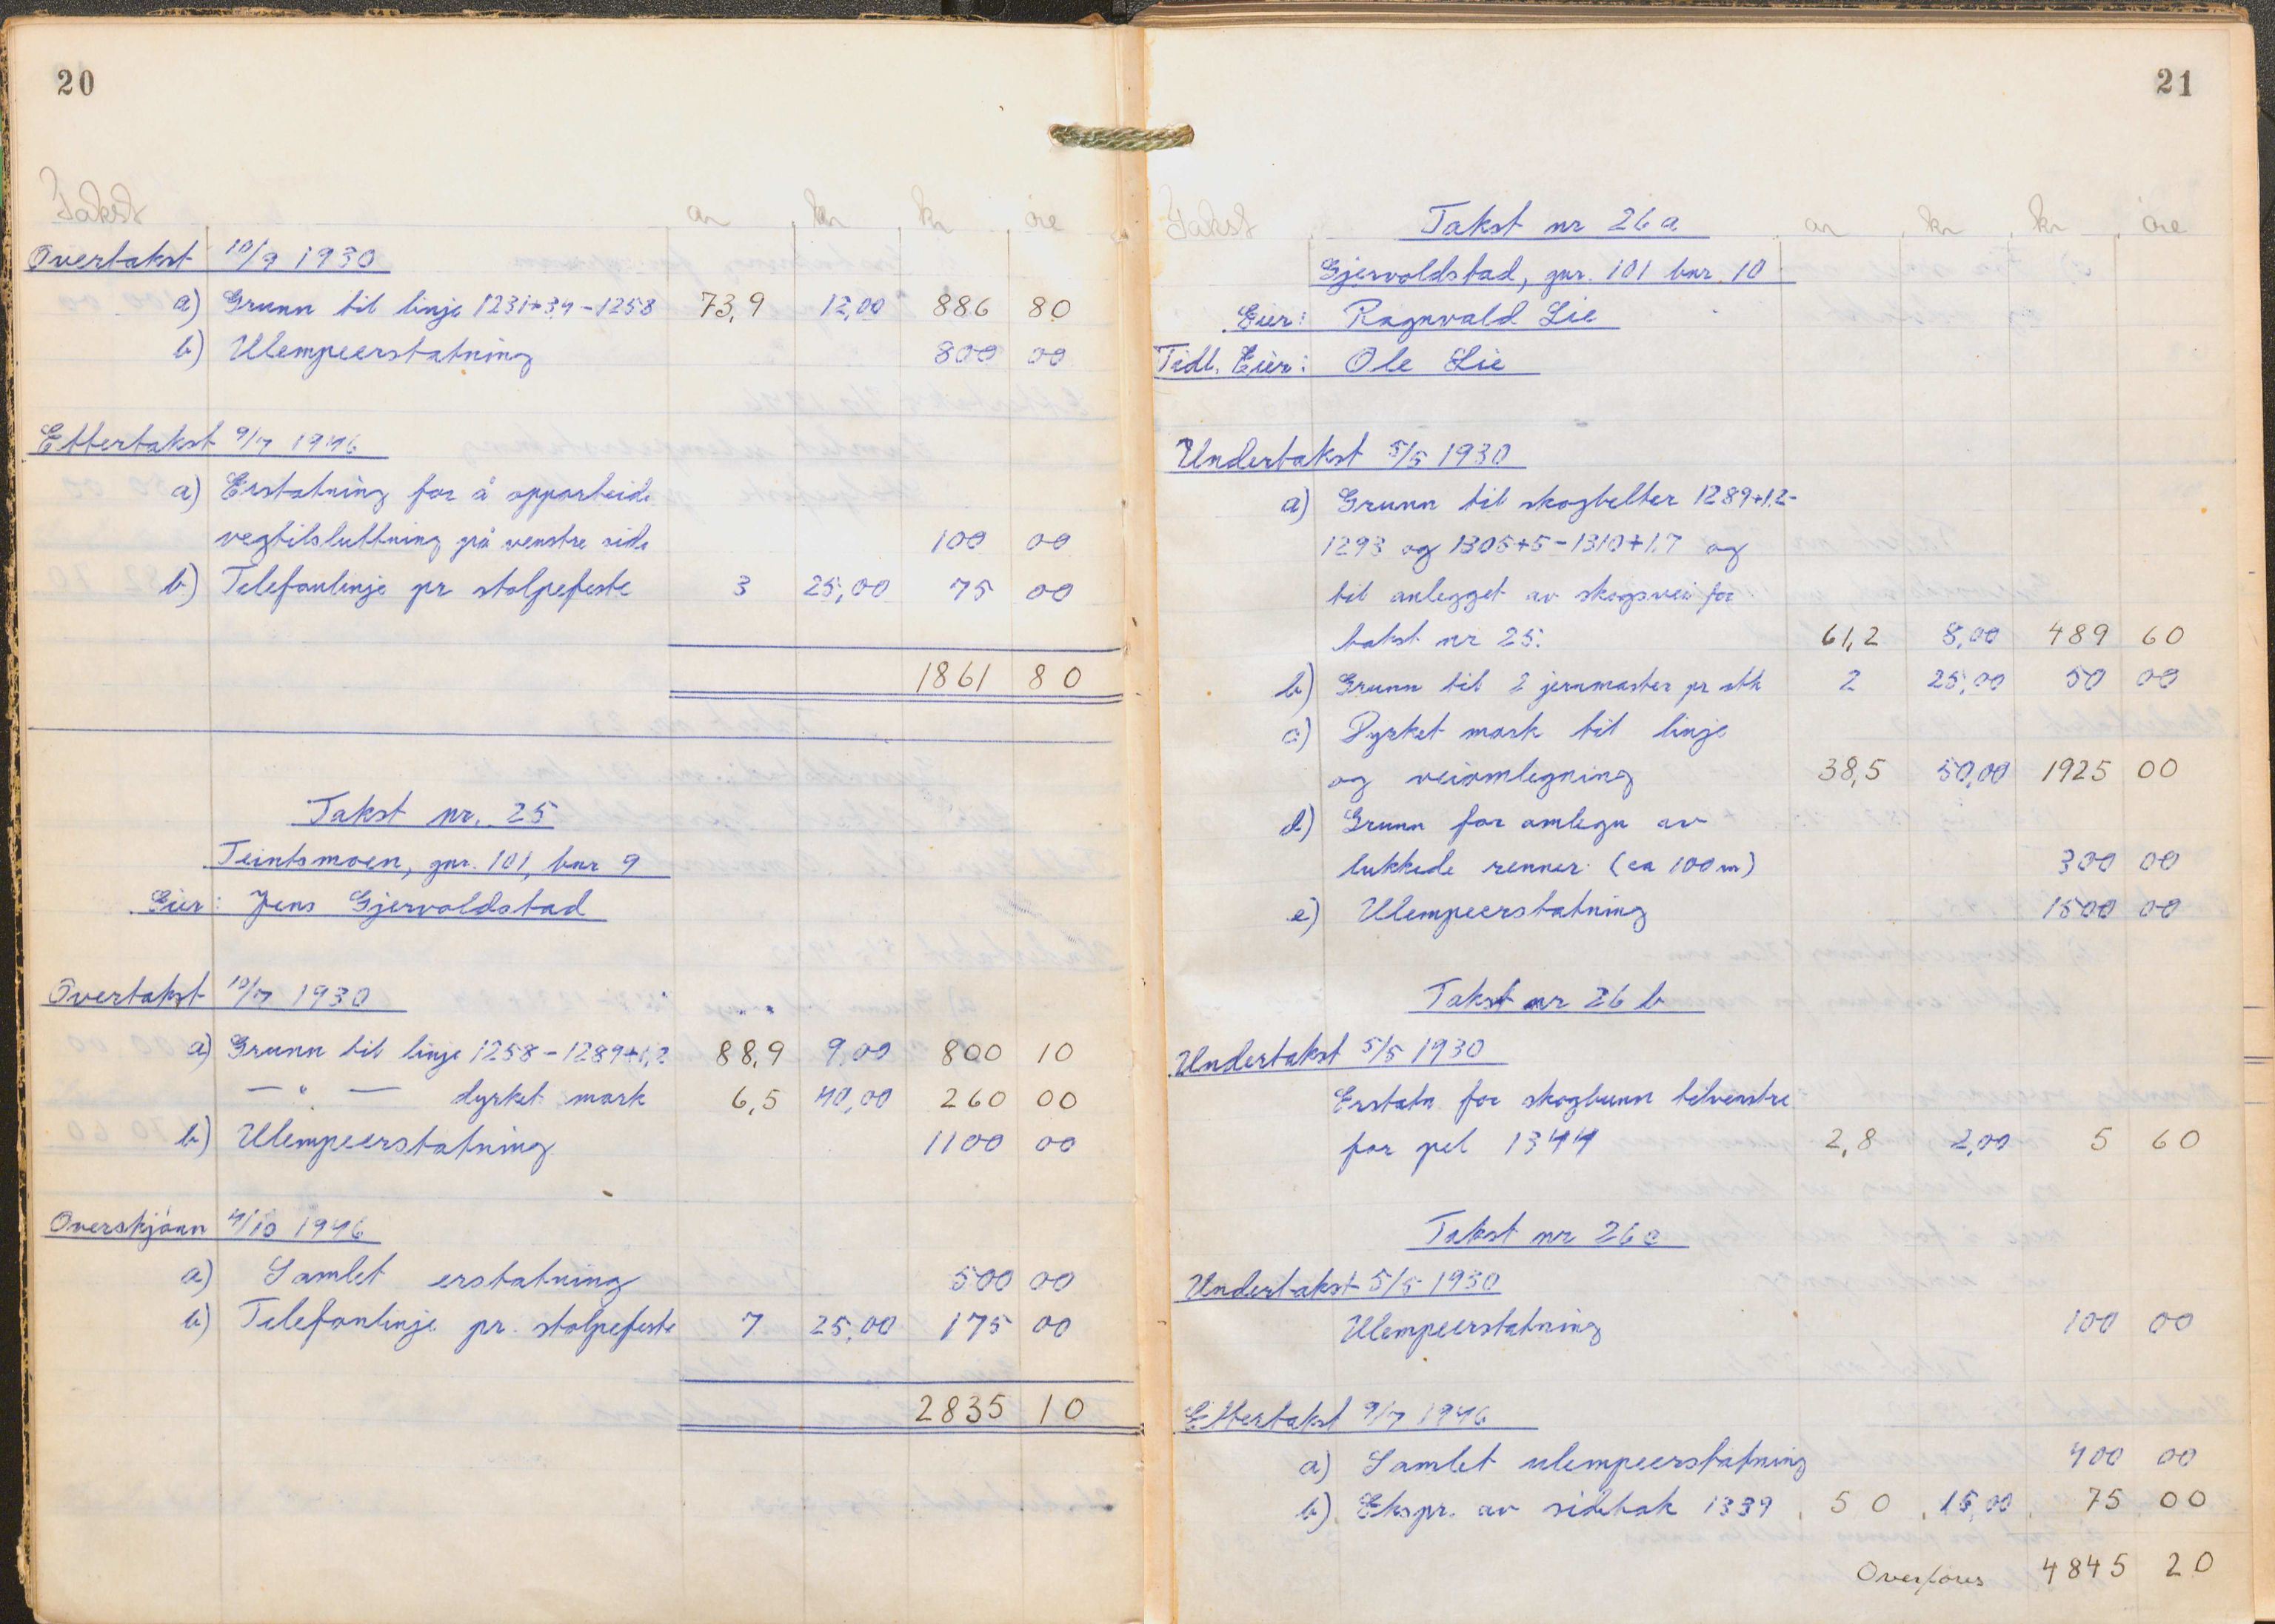 20
Takst ar kr kr øre
Overtakst 10/9 1930
a) Grunn til linje 1231+3,4-1258 73,9 12,00 886 80
b) Ulempeerstatning 800 00
Ettertakst 9/7 1946
a) Erstatning for å opparbeide
vegtilsluttning på venstre side 100 00
b) Telefonlinje pr stolpefeste 3 25,00 75 00
1861 80
Takst nr. 25
Teintsmoen, gnr. 101, bnr 9
Eier: Jens Gjervoldstad
Overtakst 10/9 1930
a) Grunn til linje 1258-1289+1,2 88,9 9,00 800 10
— " — dyrket mark 6,5 40,00 260 00
b) Ulempeerstatning 1100 00
Overskjønn 4/10 1946
a) Samlet erstatning 500 00
b) Telefonlinje pr. stolpefeste 7 25,00 175 00
2835 10
21
Takst Takst nr 26 a ar kr kr øre
Gjervoldstad, gnr. 101 bnr. 10
Eier: Ragnvald Lie
Tidl. Eier: Ole Lie
Undertakst 5/5 1930
a) Grunn til skogbelter 1289+1,2-
1293 og 1305+5-1310+1,7 og
til anlegget av skogsvei for
takst nr 25. 61,2 8,00 489 60
b) Grunn til 2 jernmaster pr stk 2 25,00 50 00
c) Dyrket mark til linje
og veiomlegning 38,5 50,00 1925 00
d) Grunn for omlegn av
lukkede renner (ca 100 m) 300 00
e) Ulempeerstatning 1500 00
Takst nr 26 b
Undertakst 5/5 1930
Erstatn for skogbunn tilvenstre
for pel 1344 2,8 2,00 5 60
Takst nr 26 c
Undertakst 5/5 1930
Ulempeerstatning 100 00
Ettertakst 9/7 1946
a) Samlet ulempeerstatning 400 00
b) Ekspr. av sidetak 1339 5 0 15,00 75 00
Overføres 4845 20